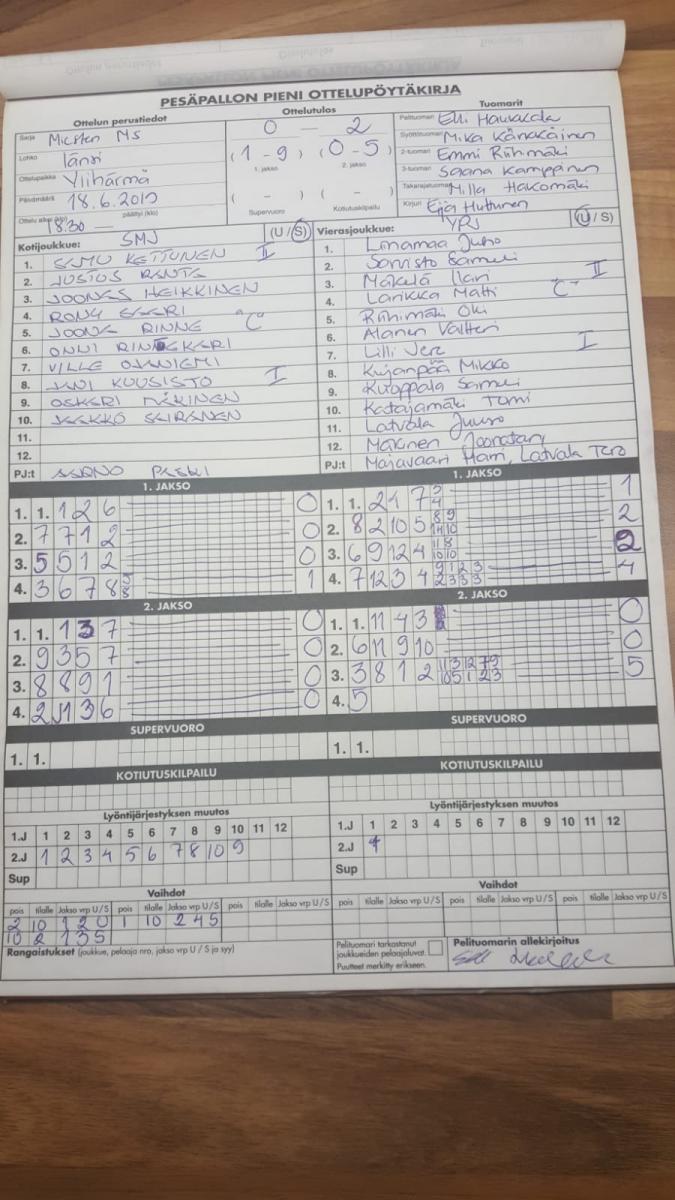 PESÄPALLON PIENI OTTELUPÖYTÄKIRJA
Ottelun perustiedot
Sarja Miesten MS
Lohko Länsi
Ottelupaikka Ylihärmä
Päivämäärä 18.6.2019
Ottelu alkoi (klo) päättyi (klo)
18.30 —
Ottelutulos
0 — 2
( 1 - 9 ) ( 0 - 5 )
1. jakso 2. jakso
( - ) ( - )
Supervuoro Kotiutuskilpailu
Tuomarit
Pelituomari Elli Haukkala
Syöttötuomari Mika Känkkäinen
2-tuomari Emmi Riihimäki
3-tuomari Saana Kamppinen
Takarajatuomari Milla Hakomäki
Kirjuri Eija Huttunen
Kotijoukkue: SMJ (U / S)
1. SAMU KETTUNEN II
2. JUSTUS RANTA
3. JOONAS HEIKKINEN
4. RONY SAARI
5. JOONA RINNE "C"
6. ONNI
7. VILLE OJANIEMI
8. JANI KUUSISTO I
9. OSKARI MÄKINEN
10. JAAKKO SEIRANEN
11.
12.
PJ:t AARNO PASSI
Vierasjoukkue: YPJ (U / S)
1. Linamaa Juho
2. Sarvisto Sameli
3. Mäkelä Ilari II
4. Larikka Matti "C"
5. Riihimäki Oki
6. Alanen Valtteri
7. Lilli Vere I
8. Kujanpää Mikko
9. Kuoppala Samuli
10. Katajamäki Tomi
11. Latvala Juuso
12. Mäkinen Joonatan
PJ:t Majavaari Harri, Latvala Tero
1. JAKSO
1. 1. 1 2 6 0
2. 7 7 1 2 0
3. 5 5 1 2 0
4. 3 6 7 8 1
1. JAKSO
1. 1. 2 1 7 1
2. 8 2 10 5 2
3. 6 9 12 4 2
4. 7 12 3 4 4
2. JAKSO
1. 1. 1 3 7 0
2. 9 3 5 7 0
3. 8 8 9 1 0
4. 2 1 3 6 0
2. JAKSO
1. 1. 11 4 3 0
2. 6 11 9 10 0
3. 3 8 1 2 5
4. 5
SUPERVUORO
1. 1.
SUPERVUORO
1. 1.
KOTIUTUSKILPAILU
KOTIUTUSKILPAILU
Lyöntijärjestyksen muutos
1.J 1 2 3 4 5 6 7 8 9 10 11 12
2.J 1 2 3 4 5 6 7 8 10 9
Sup
Lyöntijärjestyksen muutos
1.J 1 2 3 4 5 6 7 8 9 10 11 12
2.J
Sup
Vaihdot
pois tilalle Jakso vrp U/S pois tilalle Jakso vrp U/S pois tilalle Jakso vrp U/S
2 10 1 2 0 1 10 2 4 5
10 2 1 3 5
Rangaistukset (joukkue, pelaaja nro, jakso vrp U / S ja syy)
Vaihdot
pois tilalle Jakso vrp U/S pois tilalle Jakso vrp U/S pois tilalle Jakso vrp U/S
Pelituomari tarkastanut
joukkueiden pelaajaluvat.
Puutteet merkitty erikseen.
Pelituomarin allekirjoitus